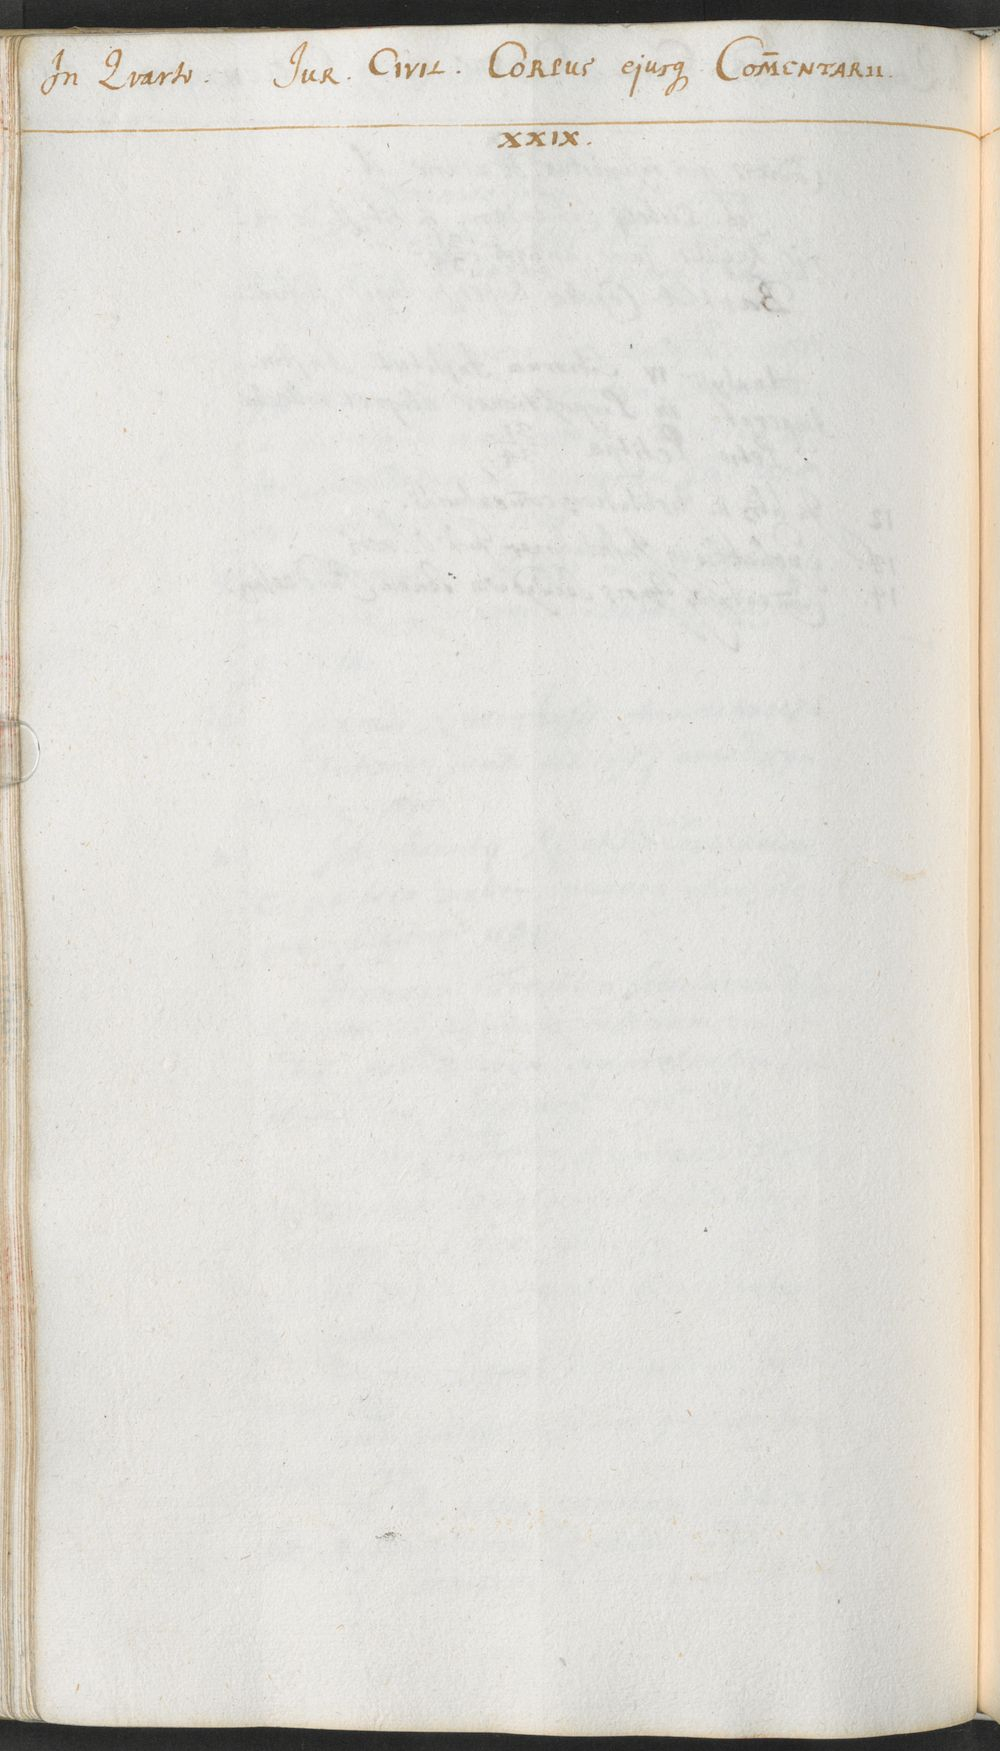 In Qvarto. Jur. Civil. Corpus ejusq Com̄entarii.
XXIX.